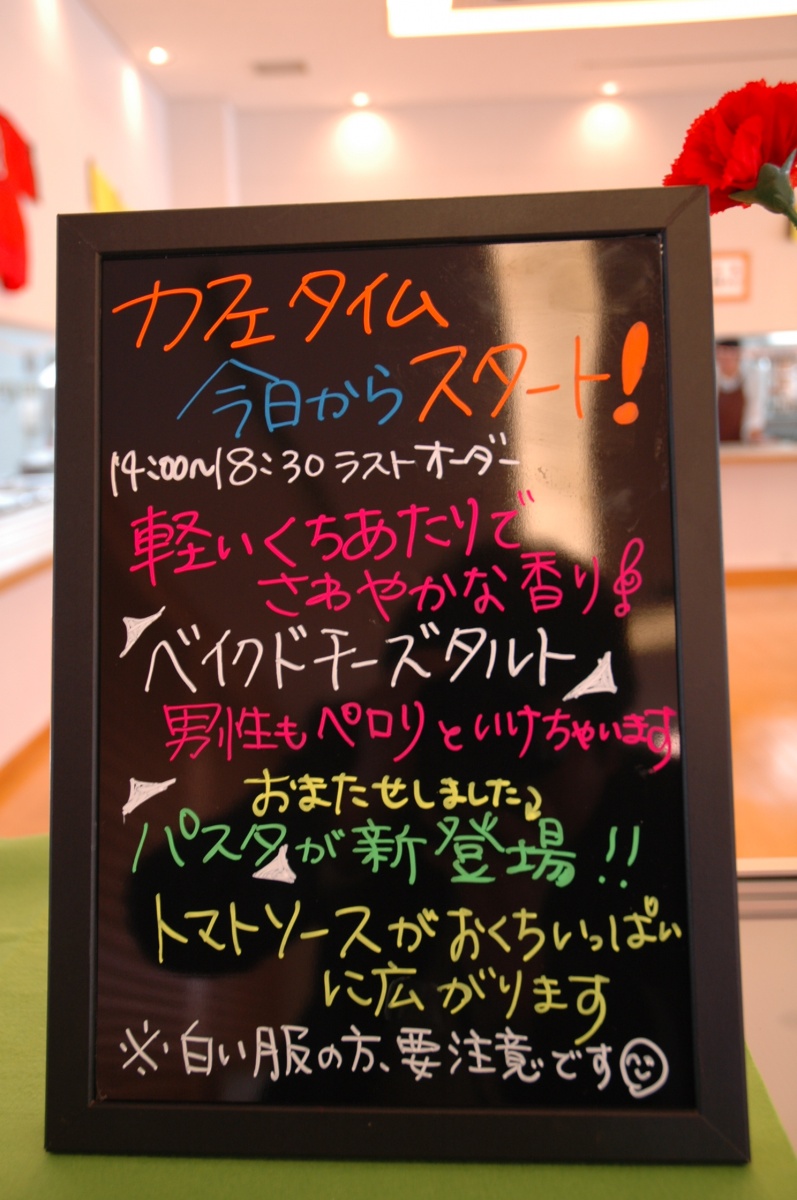 カフェタイム
今日からスタート!
14:00~18:30 ラストオーダー
軽いくちあたりで
さわやかな香り
ベイクドチーズタルト
男性もペロリといけちゃいます
おまたせしました♪
パスタが新登場!!
トマトソースがおくちいっぱい
に広がります
※白い服の方、要注意です